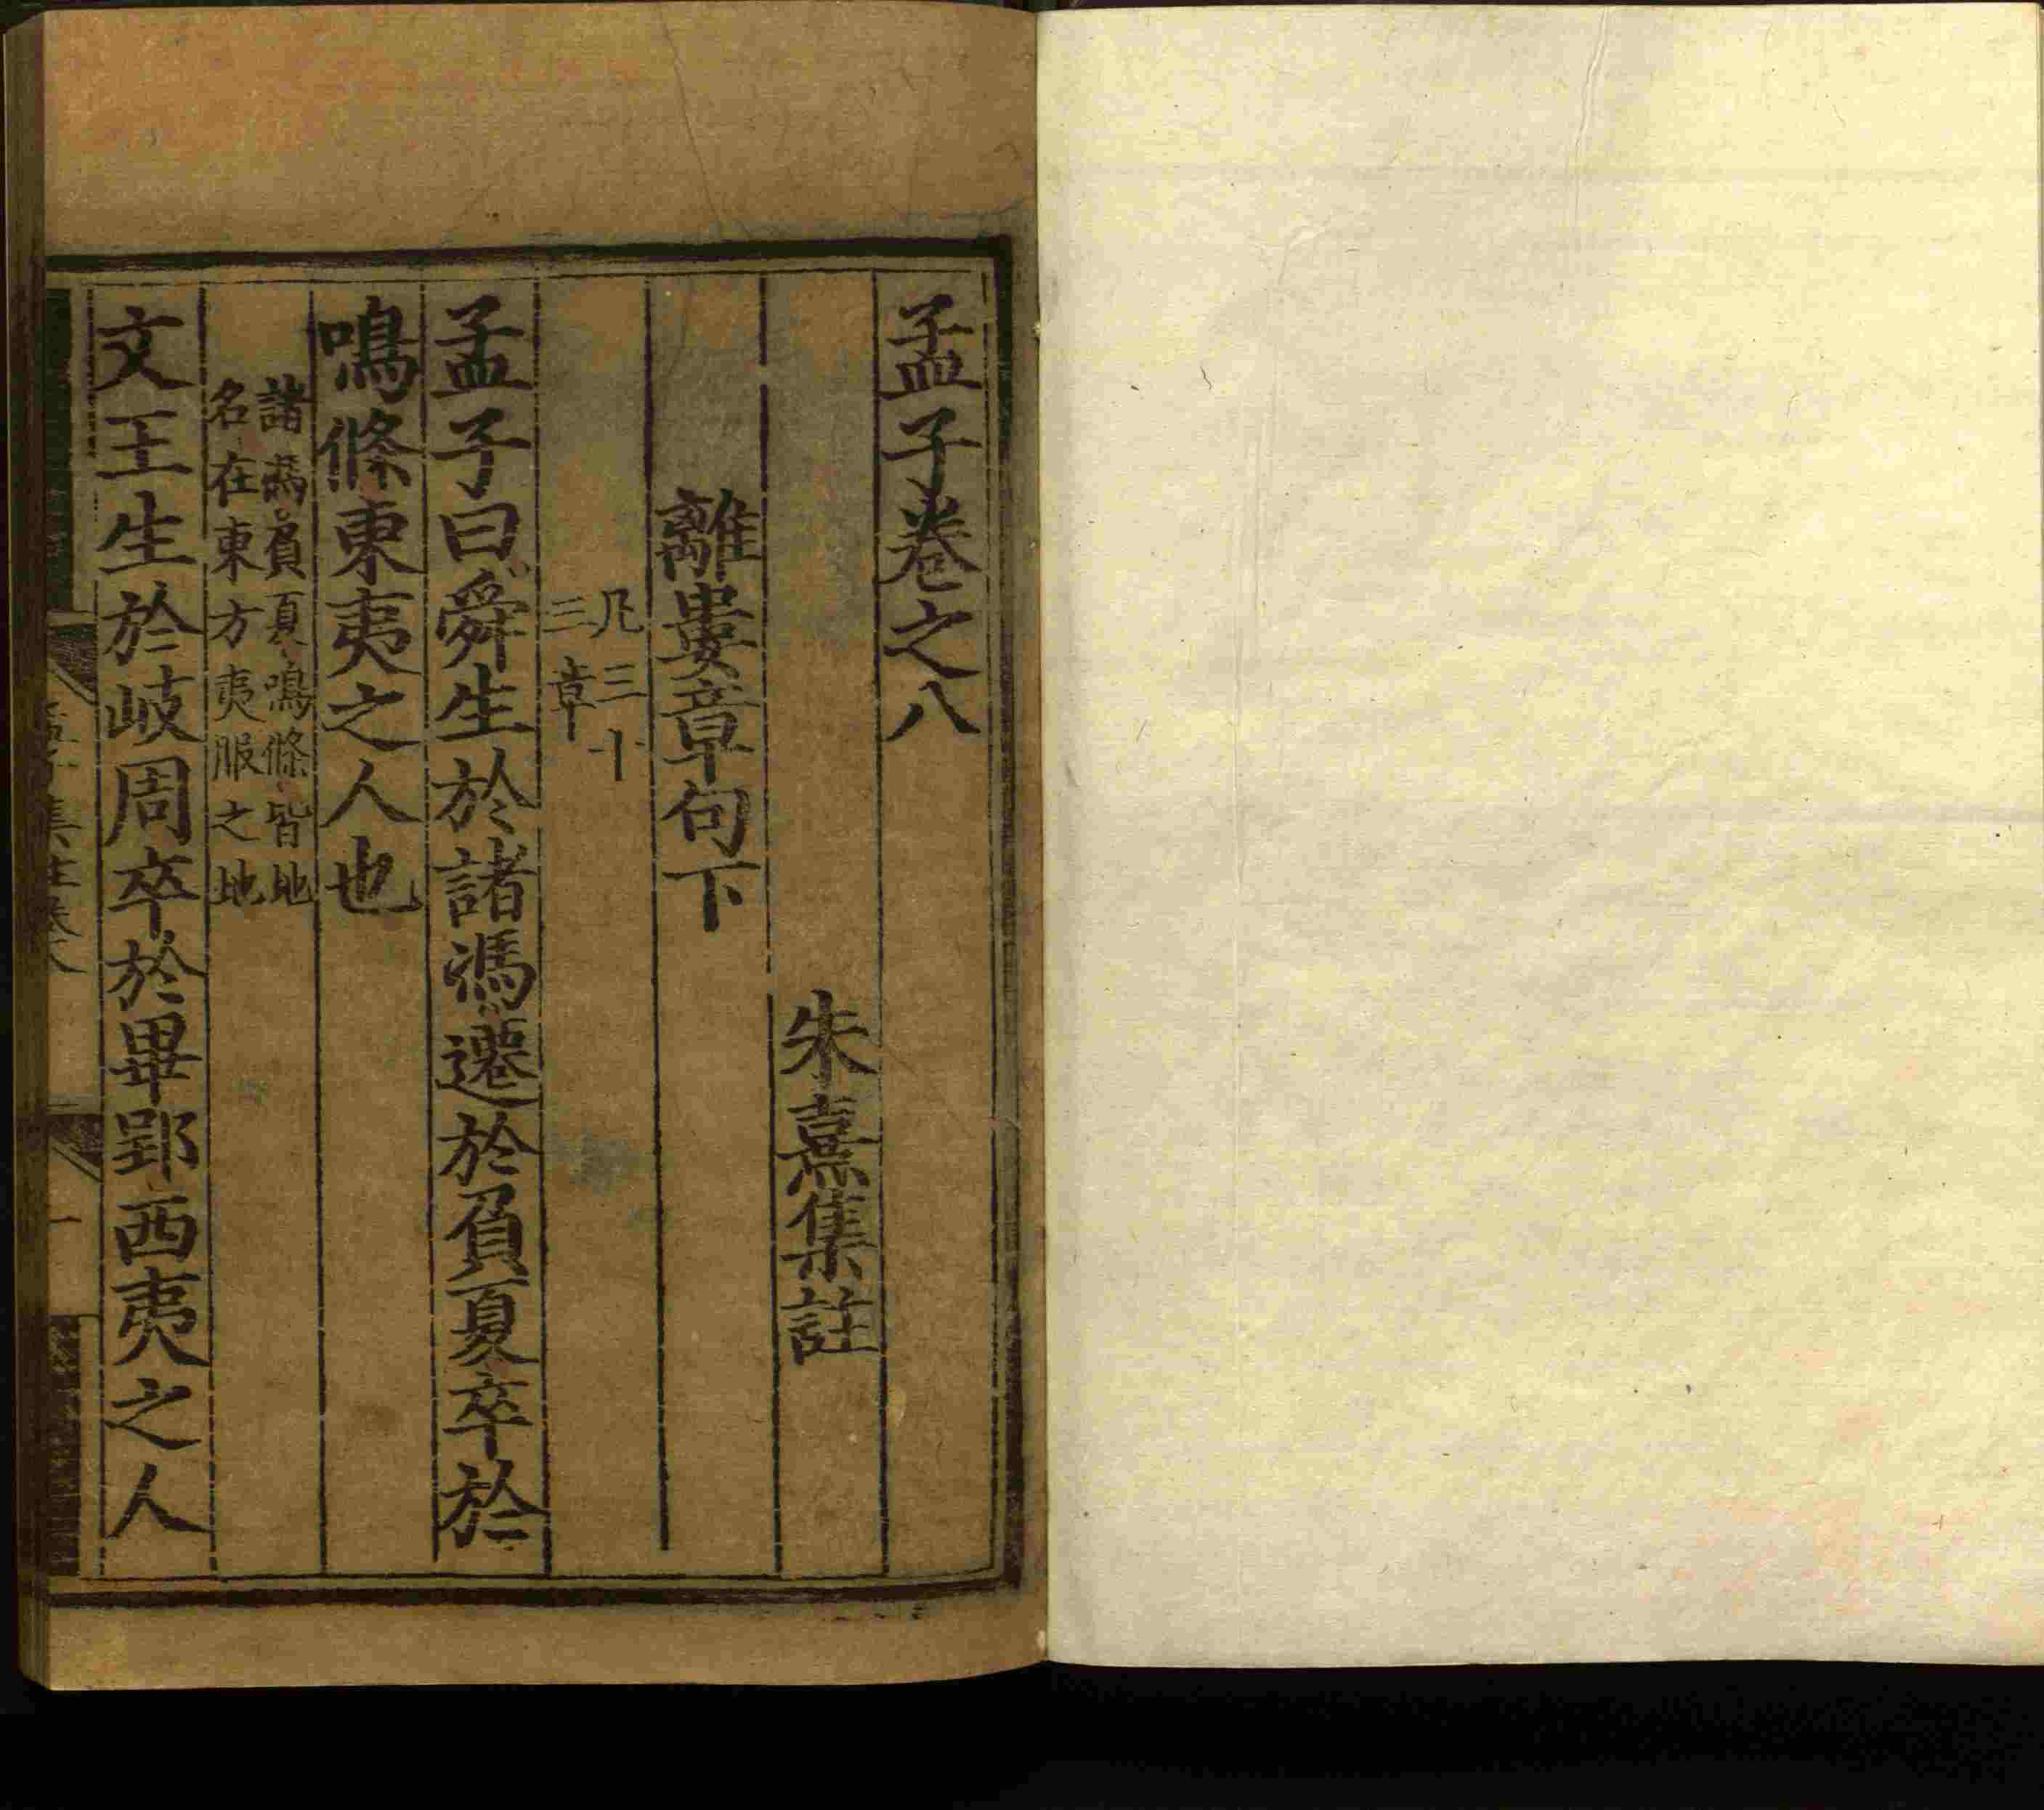 孟子卷之八
朱熹集註
離婁章句下
凡三十
三章
孟子曰舜生於諸馮遷於負夏卒於
鳴條東夷之人也
諸馮負夏鳴條皆地
名在東方夷服之地
文王生於岐周卒於畢郢西夷之人